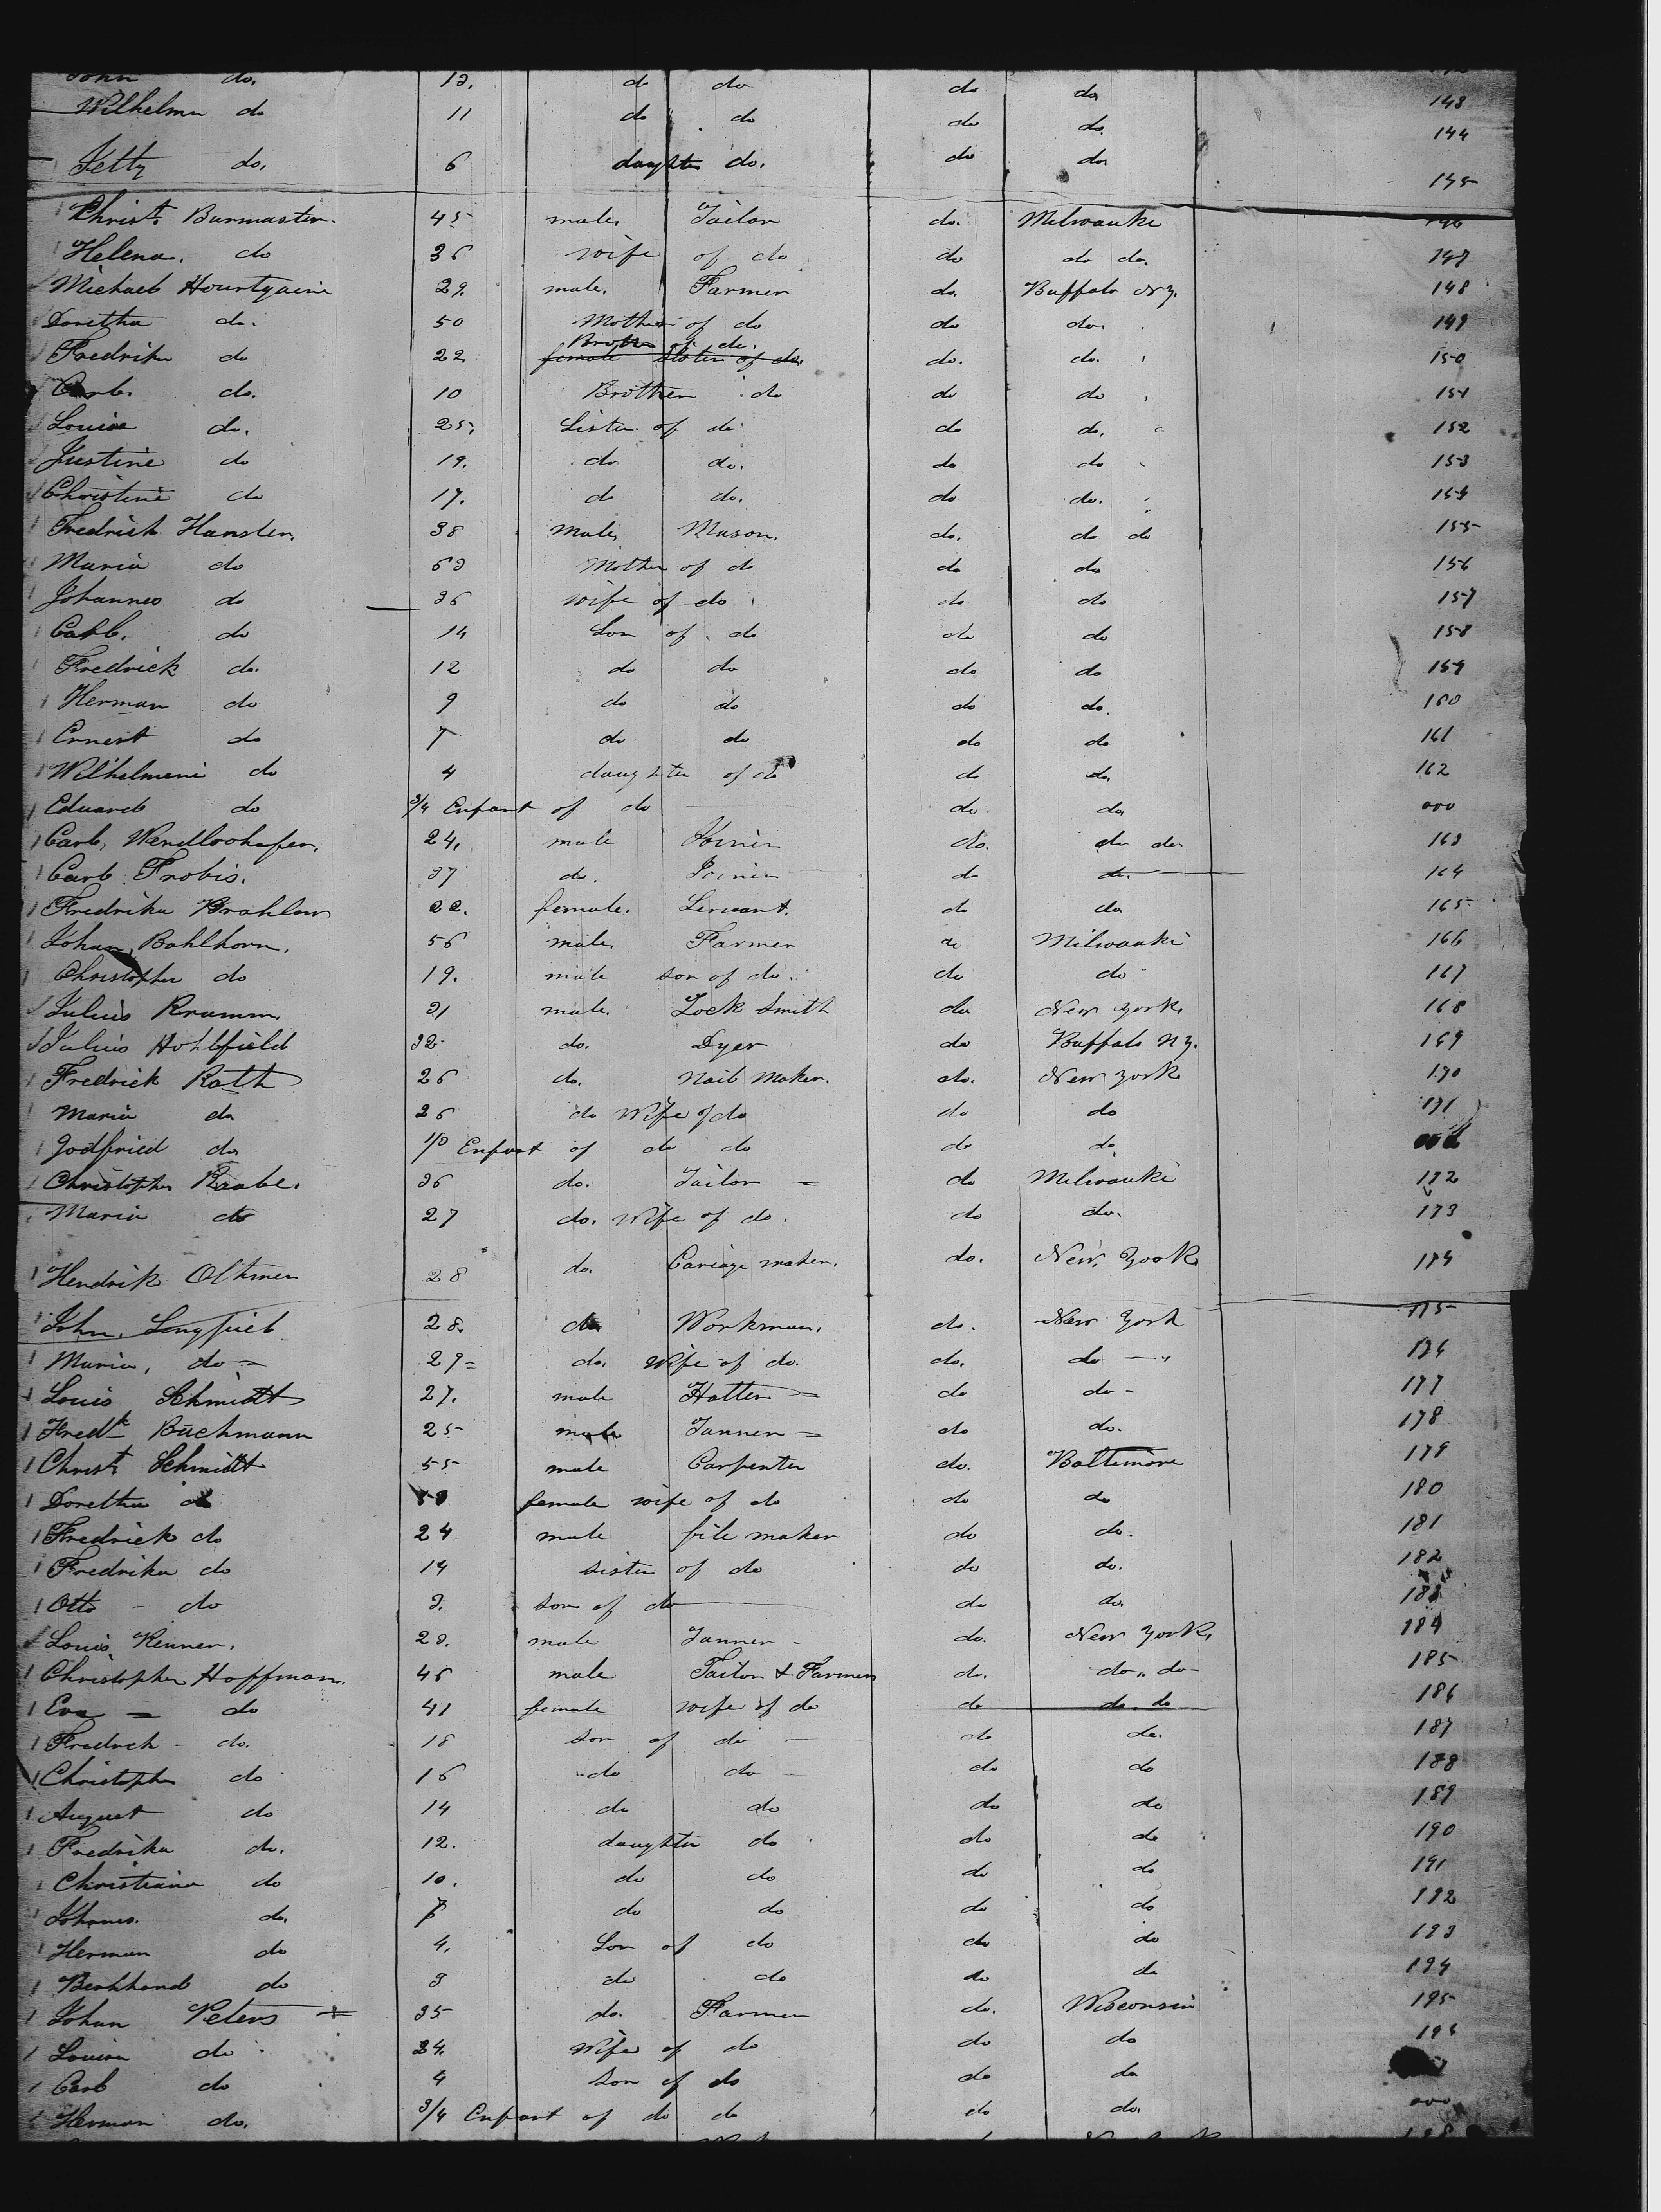 John do. 13. do do do do
Wilhelm do 11 do do do do 143
Jetty do. 6 daughter do. do do 144
145
Christ. Burmaster. 45 male, Tailor do. Milwauke 146
Helena. do 36 wife of do do do do. 147
Michael 29. male. Farmer do. Buffalo N y. 148
Doretha do. 50 Mother of do do do. 149
Brother of do.
Fredrik do 22 female sister of do. do. do. 150
Carl do. 10 Brother do do do 151
Louise do. 25. Sister of do do do. 152
Justine do 19. do do. do do 153
Christine do 17. do do. do do. 154
Fredrick Hansler. 38 male, Mason. do. do do 155
Maria do 63 Mother of do do do 156
Johannes do 36 wife of do do do 157
Carl. do 14 Son of do do do 158
Fredrick do. 12 do do do do 159
Herman do 9 do do do do. 160
Ernest do 7 do do do do 161
Wilhelmeni do 4 daughter of do do do. 162
Eduard do 3/4 Enfant of do do do 000
Carl, 24. male Joiner do. do do. 163
Carl Frobis. 37 do. Joiner do do. 164
Fredrika Brahlow 22. female. Servant. do do 165
Johan, Bahlhorn. 56 male. Farmer do Milwauki 166
Christopher do 19. male son of do. do do 167
Julius Kramm. 31 male. Lock Smith do New York 168
Julius Hohlfield 32 do. Dyer do Buffalo N y. 169
Fredrick Rath 26 do. Nail Maker. do. New York 170
Maria do 26 do Wife of do do do 171
Godfried do Enfant of do do do do
Christopher Raabe. 36 do. Tailor do Milwauki 172
Maria do 27 do. Wife of do. do do. 173
Hendrik Oltmen 28 do. Cariage maker. do. New, York 174
John. 28. do Workman. do. New York 175
Maria, do 29 do. Wife of do. do. do 176
Louis Schmidt 27. male Hatter do do 177
Fredk Büchmann 25 male Tanner do do. 178
Christ. Schmidt 55 male Carpenter do. Baltimore 179
Doretha do female wife of do do do 180
Fredrick do 24 male file maker do do. 181
Fredrika do 14 sister of do do do. 182
Otto do 3. son of do do do. 183
Louis Renner. 28. male Tanner do. New York, 184
Christopher Hoffman. 46 male Tailor & Farmer do. do " do 185
Eva do 41 female wife of do do do. do 186
Fredrick do. 18 son of do do do. 187
Christopher do 16 do do do do 188
August do 14 do do do do 189
Fredrika do. 12. daughter do do do 190
Christiana do 10. do do do do 191
Johanes. do. 7 do do do do 192
Herman do 4. Son of do do do 193
do 3 do do do do 194
Johan Peters 35 do. Farmer do. Wisconsin 195
Louisa do 34. Wife of do do do 196
Carl do 4 son of do do do
Herman do. 3/4 Enfant of do do do do. 000
198